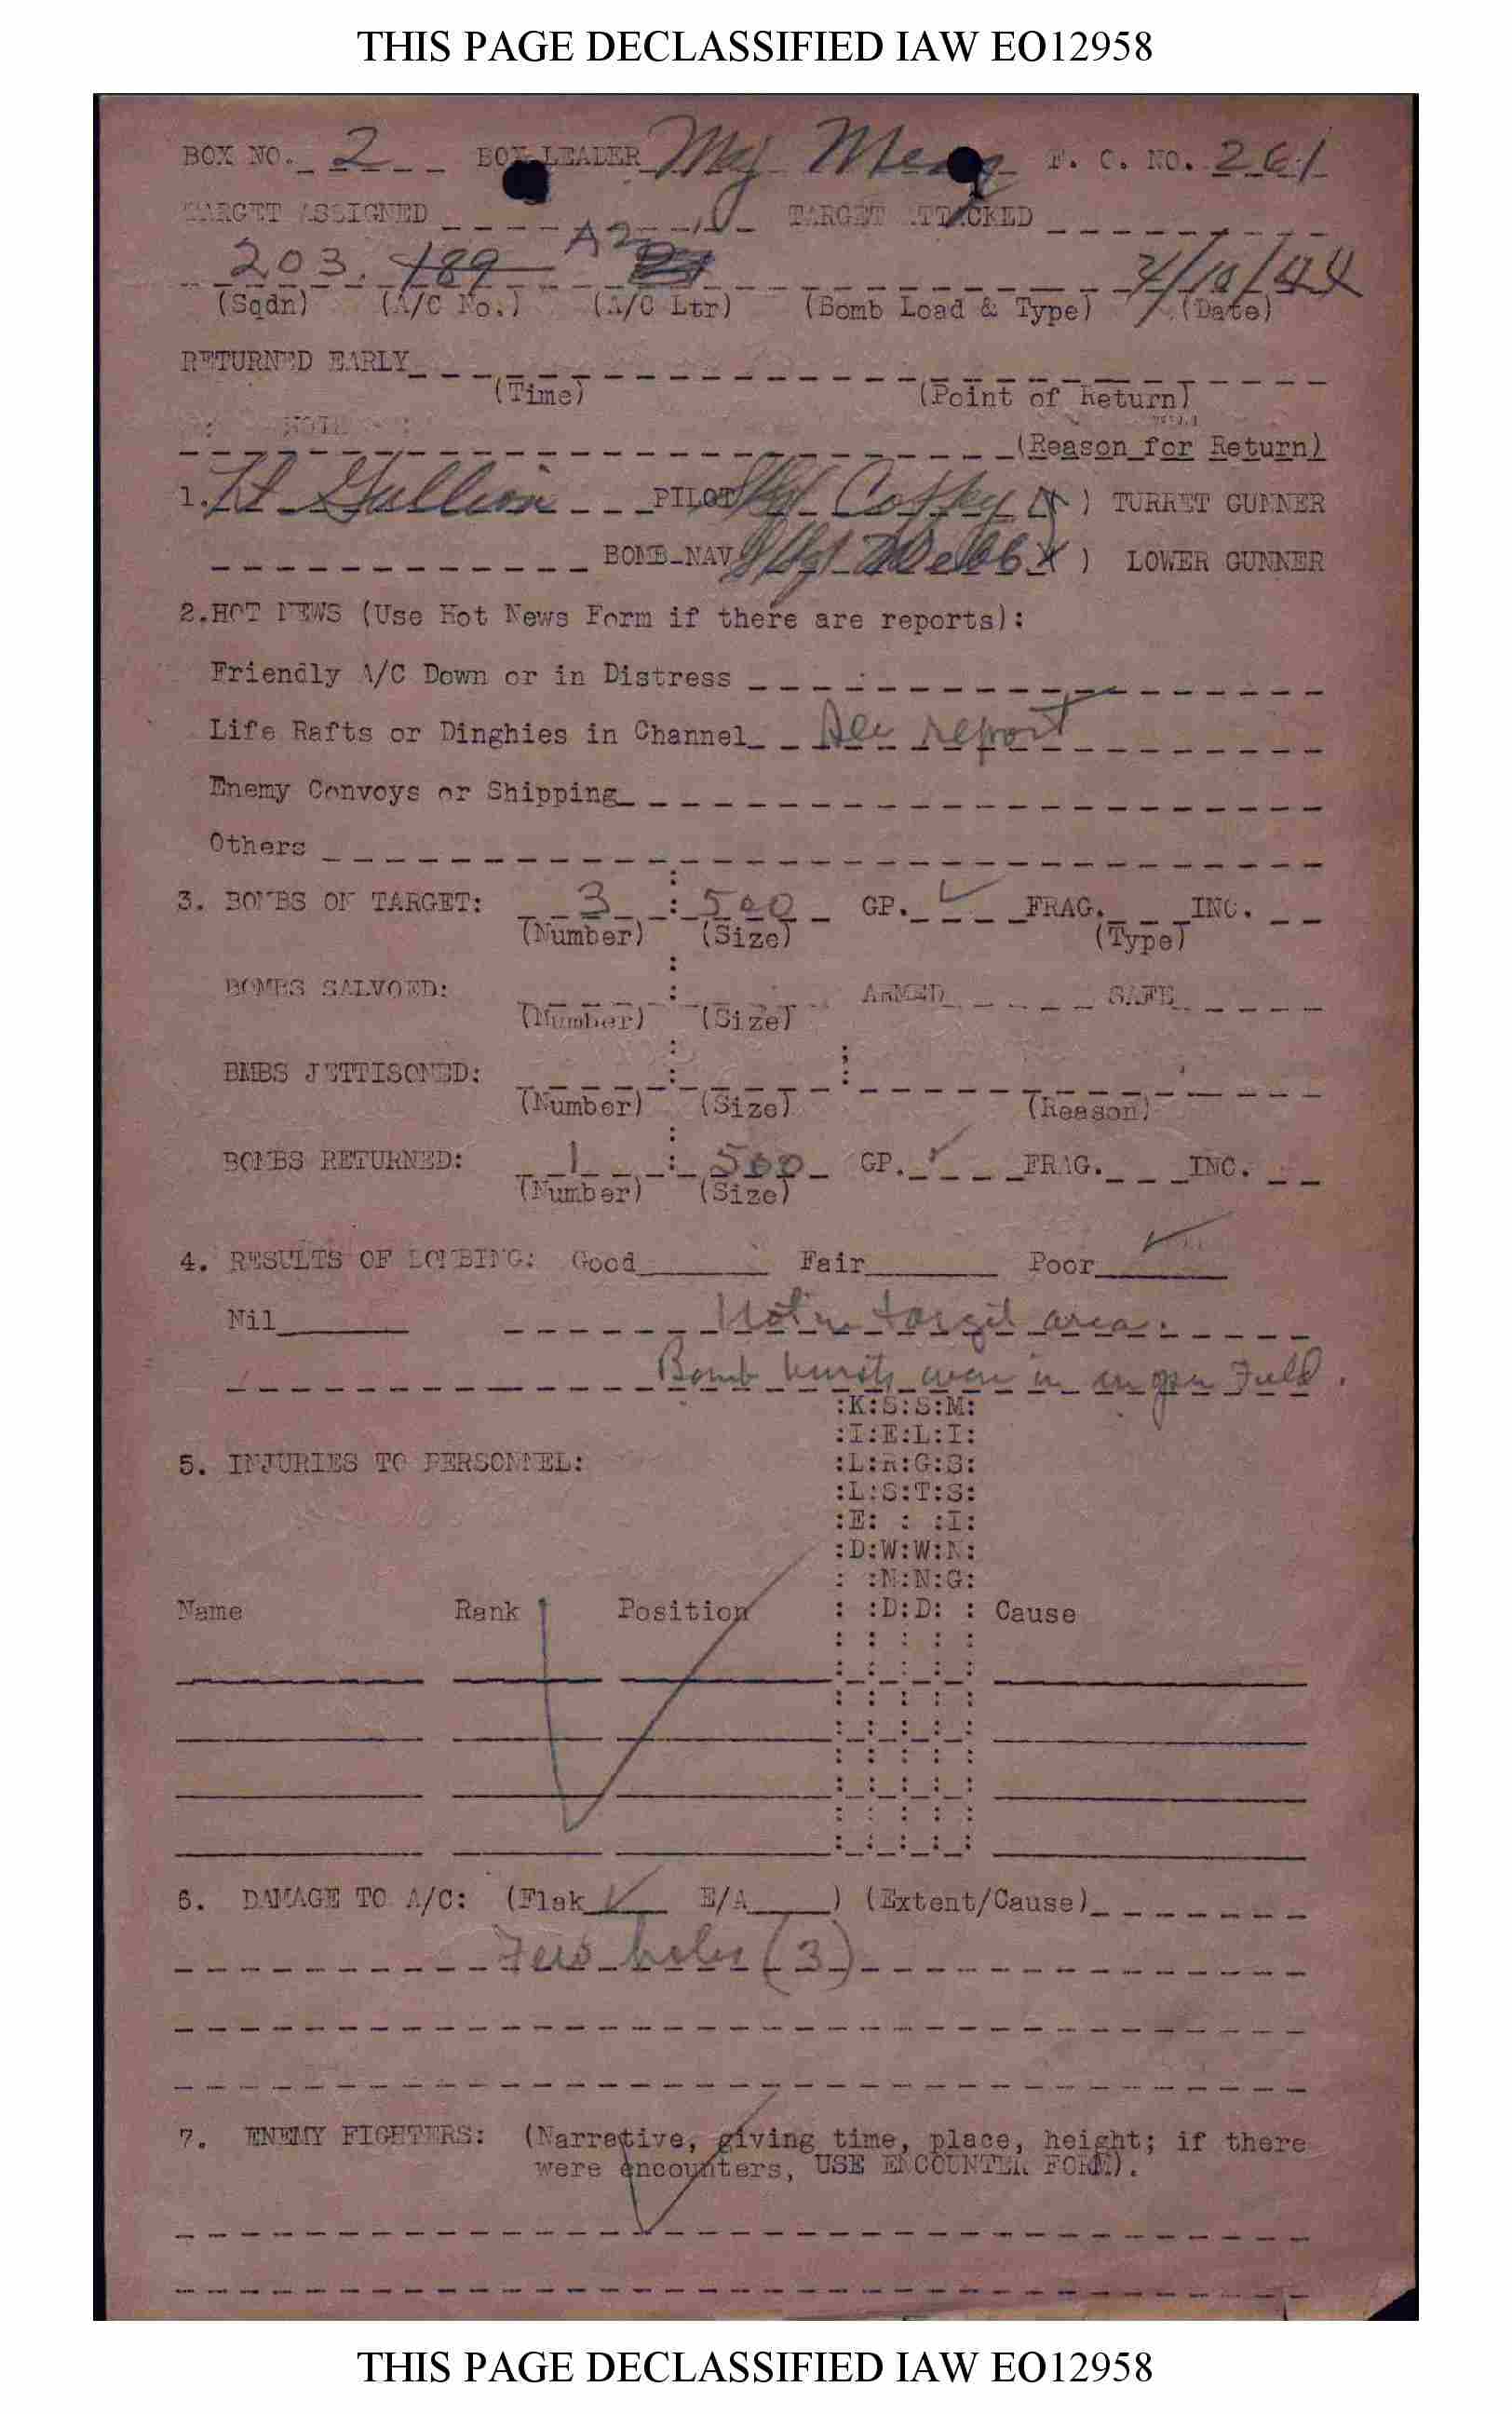 THIS PAGE DECLASSIFIED IAW EO12958
BOX NO. 2 BOX LEADER Maj Meng F. C. NO. 261
TARGET ASSIGNED TARGET ATTACKED
203. 189 A2
(Sqdn) (A/C No.) (A/C Ltr) (Bomb Load & Type) (Date)
RETURNED EARLY
(Time) (Point of Return)
(Reason for Return)
1. Lt Gullion PILOT Sgt Coffey ) TURRET GUNNER
BOMB-NAV S/Sgt Webb X ) LOWER GUNNER
2.HOT NEWS (Use Hot News Form if there are reports):
Friendly A/C Down or in Distress
Life Rafts or Dinghies in Channel See report
Enemy Convoys or Shipping
Others
3. BOMBS ON TARGET: 3 : 500 GP. ✓ FRAG. INC.
(Number) (Size) (Type)
BOMBS SALVOED: : ARMED SAFE
(Number) (Size)
BMBS JETTISONED: : :
(Number) (Size) (Reason)
BOMBS RETURNED: 1 : 500 GP. ✓ FRAG. INC.
(Number) (Size)
4. RESULTS OF BOMBING: Good Fair Poor ✓
Nil Not in target area.
Bomb bursts were in an open Field.
:K:S:S:M:
:I:E:L:I:
5. INJURIES TO PERSONNEL: :L:R:G:S:
:L:S:T:S:
:E: : :I:
:D:W:W:N:
: :N:N:G:
Name Rank Position : :D:D: : Cause
6. DAMAGE TO A/C: (Flak ✓ E/A ) (Extent/Cause)
Few holes (3)
7. ENEMY FIGHTERS: (Narrative, giving time, place, height; if there
were encounters, USE ENCOUNTER FORM).
THIS PAGE DECLASSIFIED IAW EO12958